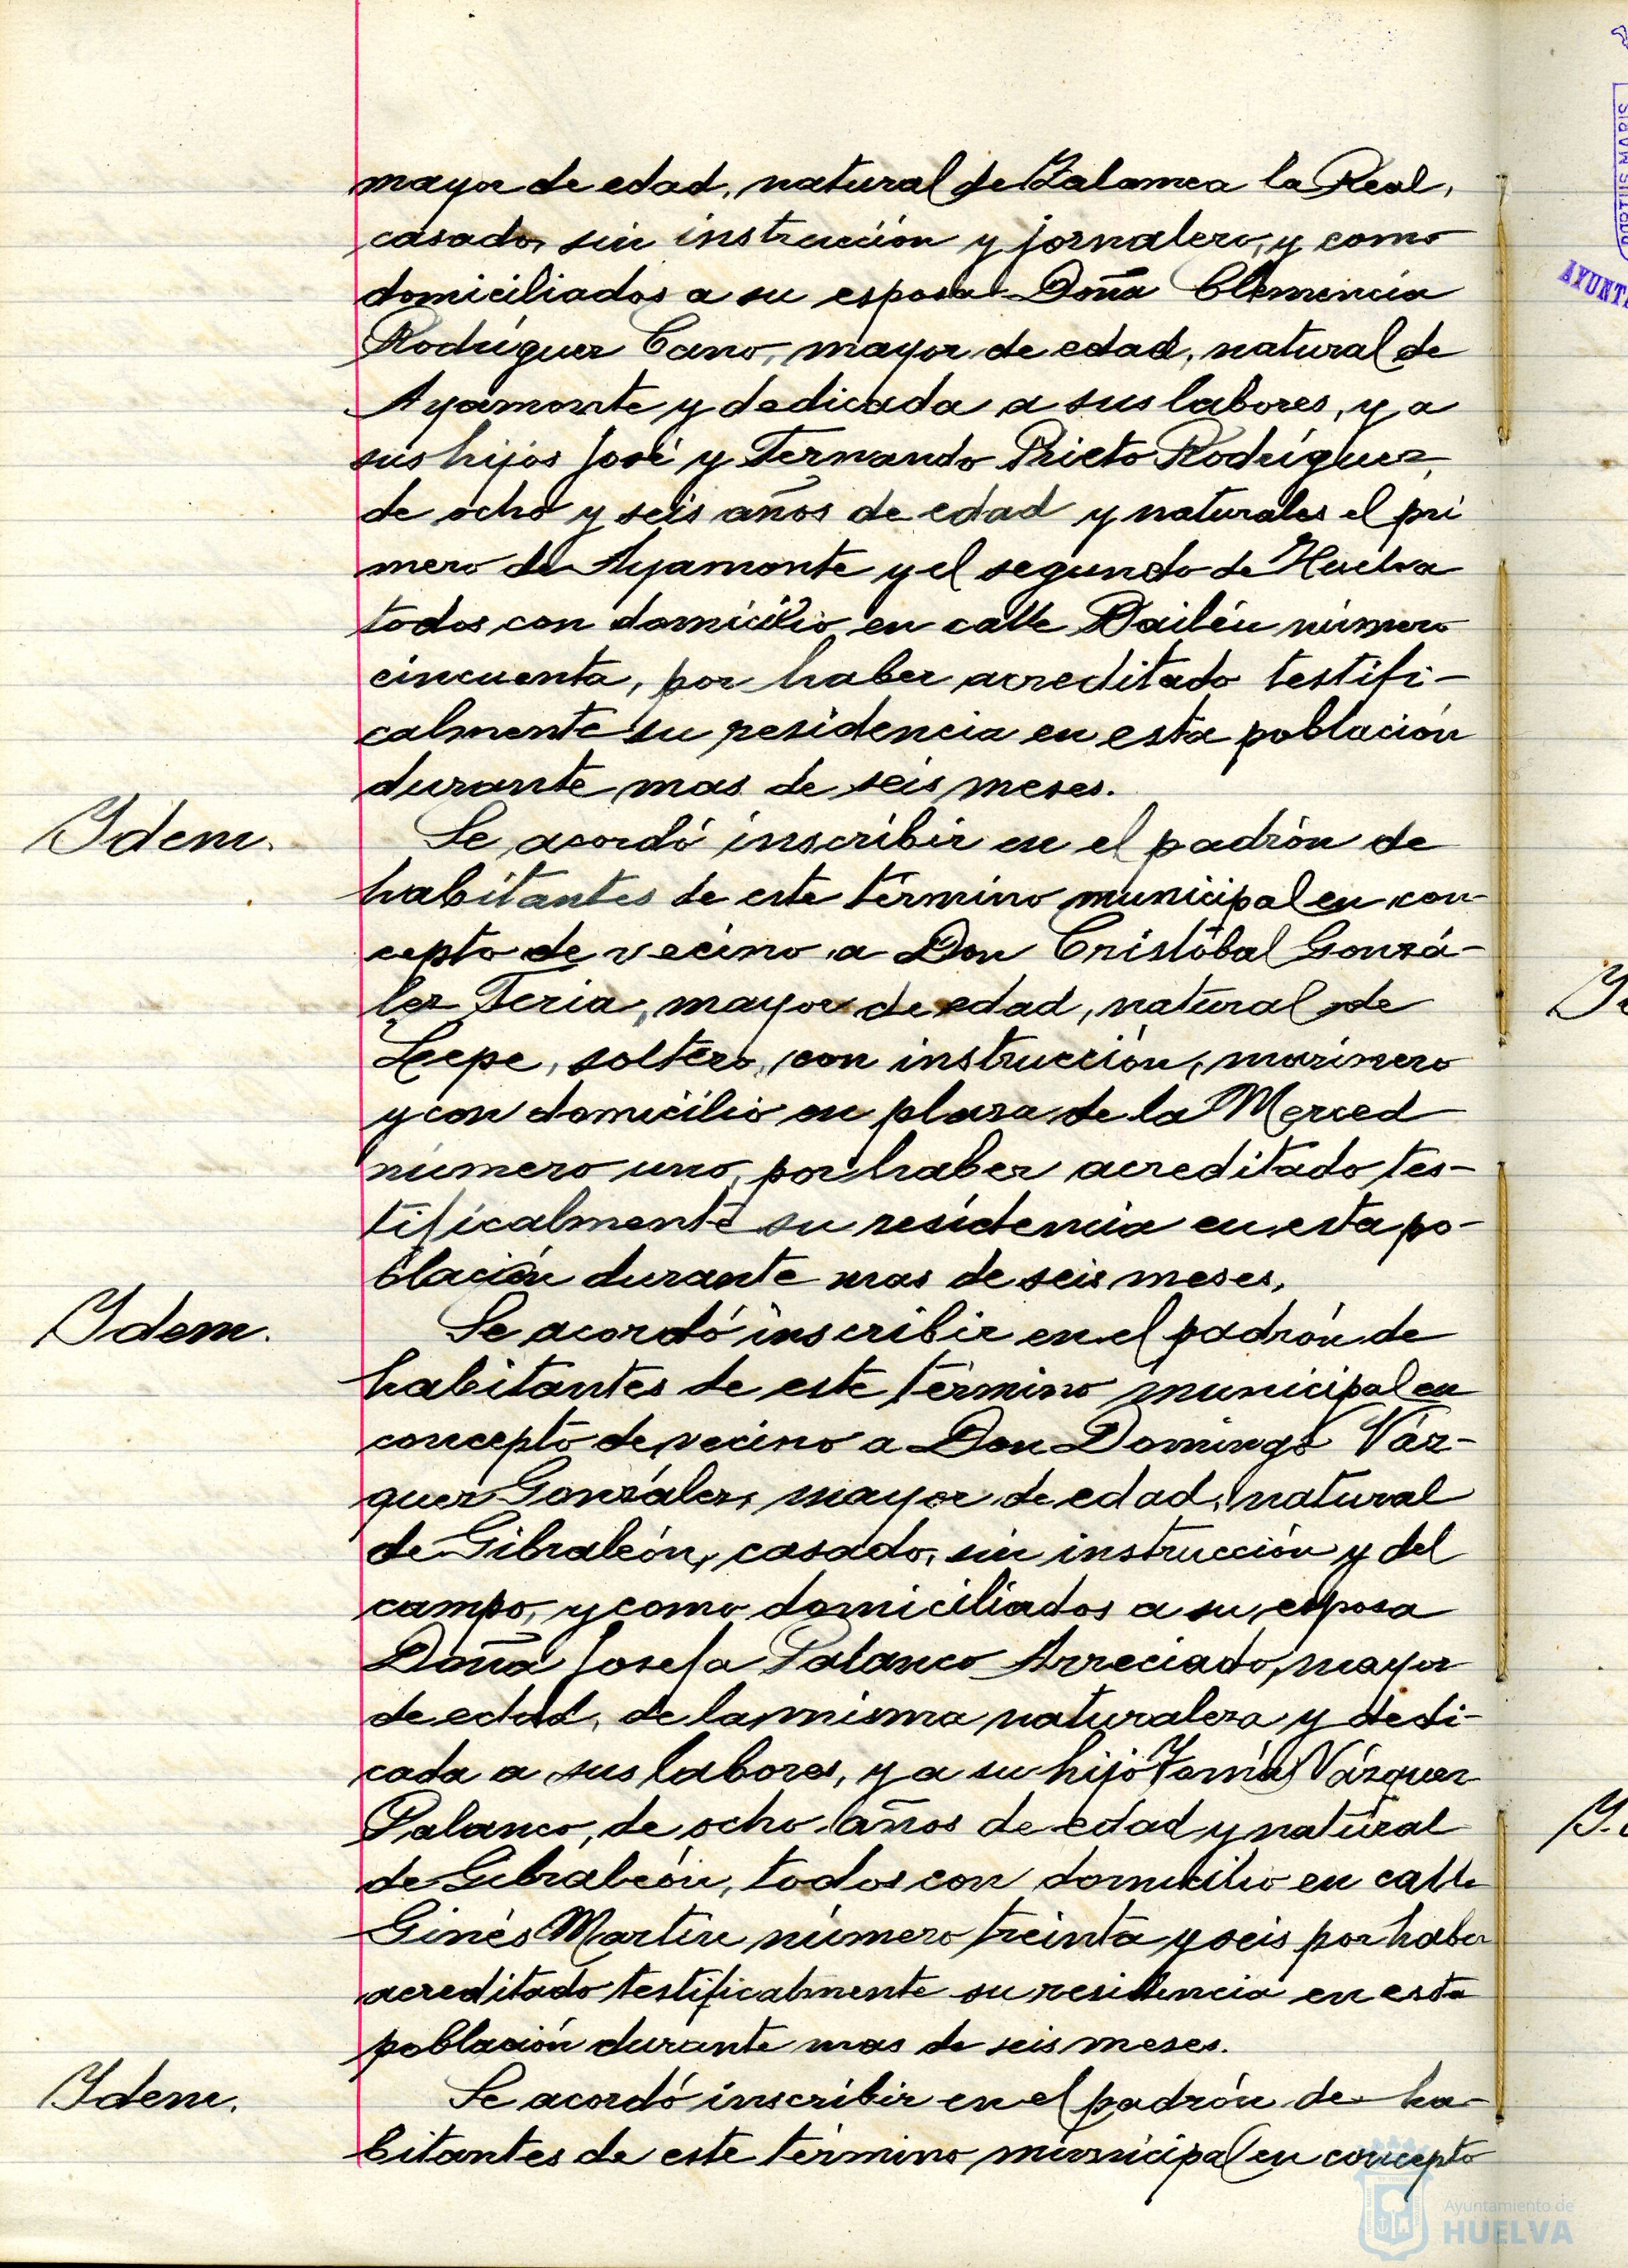 mayor de edad, natural de Zalamea la Real,
casado, sin instrucción y jornalero, y como
domiciliados a su esposa Doña Clemencia
Rodríguez Cano, mayor de edad, natural de
Ayamonte y dedicada a sus labores, y a
sus hijos José y Fernando Prieto Rodríguez,
de ocho y seis años de edad y naturales el pri
mero de Ayamonte y el segundo de Huelva
todos con domicilio en calle Bailén número
cincuenta, por haber acreditado testifi-
calmente su residencia en esta población
durante mas de seis meses.
Idem.
Se acordó inscribir en el padrón de
habitantes de este término municipal en con-
cepto de vecino a Don Cristóbal Gonzá-
lez Feria, mayor de edad, natural de
Lepe, soltero, con instrucción, marinero
y con domicilio en plaza de la Merced
número uno, por haber acreditado tes-
tificalmente su residencia en esta po-
blación durante mas de seis meses.
Idem.
Se acordó inscribir en el padrón de
habitantes de este término municipal en
concepto de vecino a Don Domingo Váz-
quez González, mayor de edad, natural
de Gibraleón, casado, sin instrucción y del
campo, y como domiciliados a su esposa
Doña Josefa Palanco Arreciado, mayor
de edad, de la misma naturaleza y dedi-
cada a sus labores, y a su hijo Tomás Vázquez
Palanco, de ocho años de edad y natural
de Gibraleón, todos con domicilio en calle
Ginés Martín número treinta y seis por haber
acreditado testificalmente su residencia en esta
población durante mas de seis meses.
Idem.
Se acordó inscribir en el padrón de ha-
bitantes de este término municipal en concepto
Ayuntamiento de
HUELVA
PORTUS MARIS
AYUNT